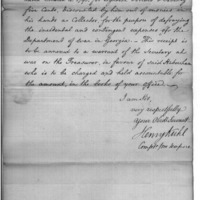 five Cents, disbursed by him out of monies in
his hands as Collector, for the purpose of defraying
the incidental and contingent expenses of the
Department of War in Georgia. This receipt is
to be annexed to a warrant of the Secretary at
war on the Treasurer, in favour of said Habersham
who is to be charged and held accountable for
the amount, in the books of your office.
I am Sir,
very respectfully
your Obed. Servant
Henry Kuhl
Compt. pro tempore